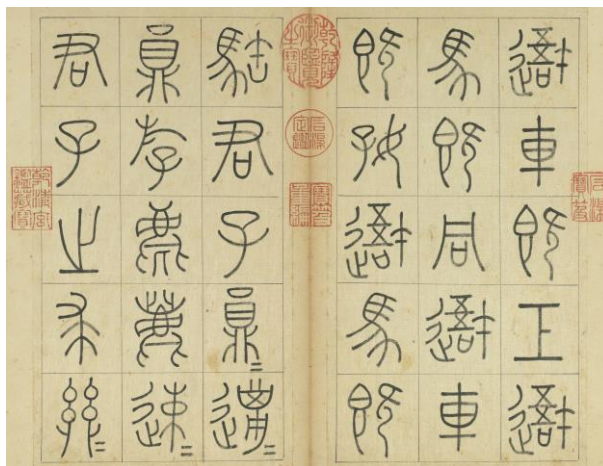 吾車既工吾
馬既同吾車
既好吾馬既
君子員=邋=
員斿麀鹿速=
君子之求